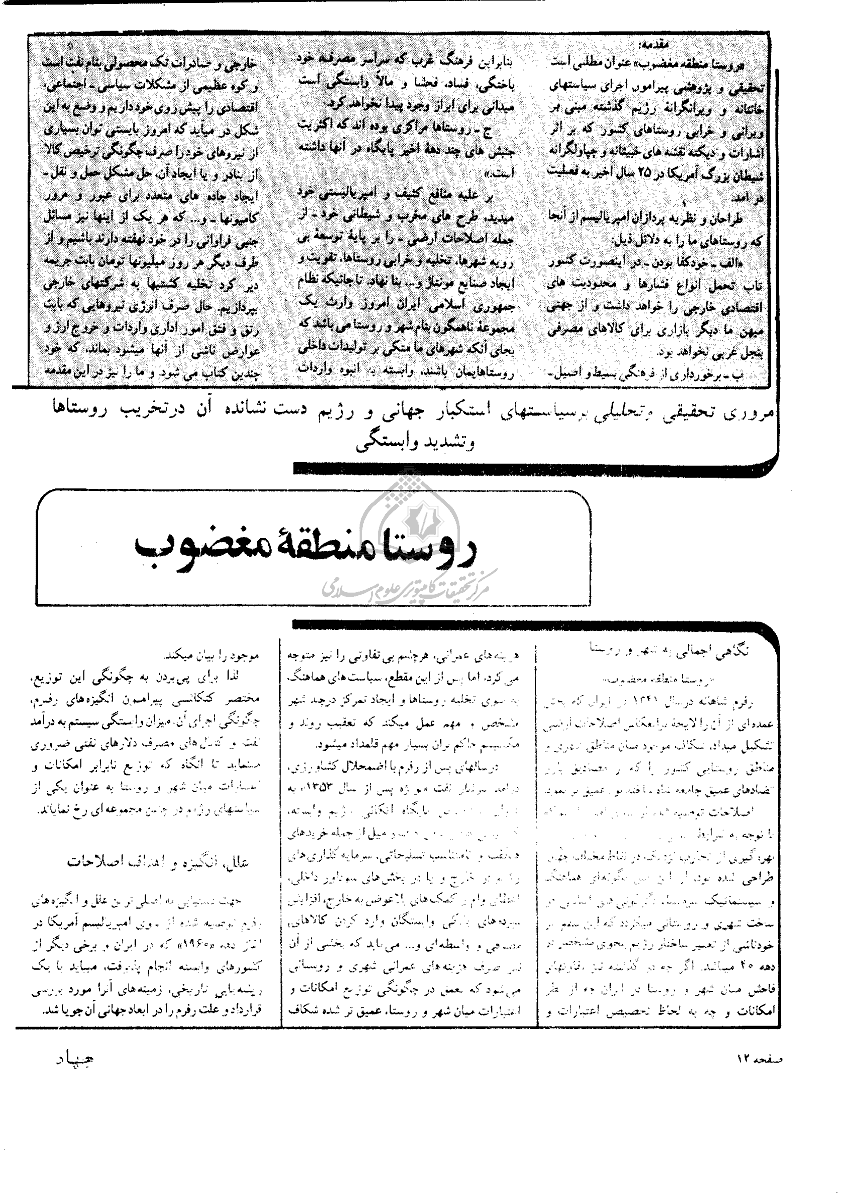 مقدمه:
«روستا منطقه مغضوب» عنوان مطلبی است
تحقیقی و پژوهشی پیرامون اجرای سیاستهای
خائنانه و ویرانگرانه رژیم گذشته مبنی بر
ویرانی و خرابی روستاهای کشور که بر اثر
اشارات و دیکته نقشه های خبیثانه و چپاولگرانه
شیطان بزرگ آمریکا در ۲۵ سال اخیر به فعلیت
در آمد.
طراحان و نظریه پردازان امپریالیسم از آنجا
که روستاهای ما را به دلائل ذیل:
«الف ـ خودکفا بودن ـ در اینصورت کشور
تاب تحمل انواع فشارها و محدودیت های
اقتصادی خارجی را خواهد داشت و از جهتی
میهن ما دیگر بازاری برای کالاهای مصرفی
بنجل غربی نخواهد بود.
ب ـ برخورداری از فرهنگی بسیط و اصیل ـ
بنابراین فرهنگ غرب که سراسر مصرف، خود
باختگی، فساد، فحشا و مالاً وابستگی است
میدانی برای ابراز وجود پیدا نخواهد کرد.
ج ـ روستاها مراکزی بوده اند که اکثریت
جنبش های چند دههٔ اخیر پایگاه در آنها داشته
است.»
بر علیه منافع کثیف و امپریالیستی خود
میدید، طرح های مخرب و شیطانی خود ـ از
جمله اصلاحات ارضی ـ را بر پایهٔ توسعهٔ بی
رویه شهرها، تخلیه و خرابی روستاها، تقویت و
ایجاد صنایع مونتاژ و... بنا نهاد، تاجائیکه نظام
جمهوری اسلامی ایران امروز وارث یک
مجموعهٔ ناهمگون بنام شهر و روستا می باشد که
بجای آنکه شهرهای ما متکی بر تولیدات داخلی
روستاهایمان باشند، وابسته به انبوه واردات
خارجی و صادرات تک محصولی بنام نفت است
و کوه عظیمی از مشکلات سیاسی ـ اجتماعی،
اقتصادی را پیش روی خود داریم و وضع به این
شکل در میآید که امروز بایستی توان بسیاری
از نیروهای خود را صرف چگونگی ترخیص کالا
از بنادر و یا ایجاد آن، حل مشکل حمل و نقل ـ
ایجاد جاده های متعدد برای عبور و مرور
کامیونها ـ و... که هر یک از اینها نیز مسائل
جنبی فراوانی را در خود نهفته دارند باشیم و از
طرف دیگر هر روز میلیونها تومان بابت جریمه
دیر کرد تخلیه کشتیها به شرکتهای خارجی
بپردازیم. حال صرف انرژی نیروهایی که بابت
رتق و فتق امور اداری واردات و خروج ارز و
عوارض ناشی از آنها میشود بماند، که خود
چندین کتاب می شود. و ما را نیز در این مقدمه
مروری تحقیقی و تحلیلی بر سیاستهای استکبار جهانی و رژیم دست نشانده آن در تخریب روستاها
و تشدید وابستگی
روستا منطقهٔ مغضوب
مرکز تحقیقات کامپیوتری علوم اسلامی
نگاهی اجمالی به شهر و روستا
«روستا منطقه مغضوب»
رفرم شاهانه در سال ۱۳۴۱ در ایران که بخش
عمده ای از آن را لایحهٔ اصلاحات ارضی
تشکیل میداد، شکاف موجود میان مناطق شهری و
مناطق روستایی کشور را که از مصادیق بارز
تضادهای عمیق جامعه بود عمیق تر نمود.
اصلاحات توصیه شده
با توجه به شرایط
بهره گیری از تجارب در نقاط مختلف جهان
طراحی شده بود، از این هماهنگ
و سیستماتیک اساسی در
ساخت شهری و روستائی میگردد که این
خود ناشی از تغییر ساختار رژیم بنحوی مشخص در
دهه ۴۰ میباشد. اگر چه در گذشته نیز تفاوتهای
فاحش میان شهر و روستا در ایران چه از نظر
امکانات و چه به لحاظ تخصیص اعتبارات و
هزینه های عمرانی، هر چشم بی تفاوتی را نیز متوجه
می کرد، اما پس از این مقطع، سیاست های هماهنگ،
به سوی تخلیه روستاها و ایجاد تمرکز در چند شهر
مشخص و مهم عمل میکند که تعقیب روند و
مکانیسم حاکم بر آن بسیار مهم قلمداد میشود.
در سالهای پس از رفرم با اضمحلال کشاورزی،
درآمد سرشار نفت به ویژه پس از سال ۱۳۵۳، به
پایگاه اتکائی رژیم وابسته،
و میل از جمله خریدهای
هنگفت و نامتناسب تسلیحاتی، سرمایه گذاری های
در خارج و یا در بخش های سودآور داخلی،
اعطای وام و کمک های بلاعوض به خارج، افزایش
سپرده های بانکی وابستگان وارد کردن کالاهای
مصرفی و واسطه ای و... می یابد که بخشی از آن
نیز صرف هزینه های عمرانی شهری و روستائی
می شود که تعمق در چگونگی توزیع امکانات و
اعتبارات میان شهر و روستا، عمیق تر شده شکاف
موجود را بیان میکند.
لذا برای پی بردن به چگونگی این توزیع،
مختصر کنکاشی پیرامون انگیزه های رفرم،
چگونگی اجرای آن، میزان وابستگی سیستم به درآمد
نفت و کانال های مصرف دلارهای نفتی ضروری
مینماید تا آنگاه که توزیع نابرابر امکانات و
اعتبارات میان شهر و روستا به عنوان یکی از
سیاستهای رژیم در چنین مجموعه ای رخ نمایاند.
علل، انگیزه و اهداف اصلاحات
جهت دستیابی به اصلی ترین علل و انگیزه های
رفرم توصیه شده از سوی امپریالیسم آمریکا در
آغاز دهه «۱۹۶۰» که در ایران و برخی دیگر از
کشورهای وابسته انجام پذیرفت، میباید با یک
ریشه یابی تاریخی، زمینه های آنرا مورد بررسی
قرار داد و علت رفرم را در ابعاد جهانی آن جویا شد.
صفحه ۱۲
جهاد